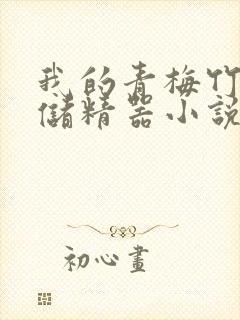 我的青梅竹
儲精器小說
初心畫